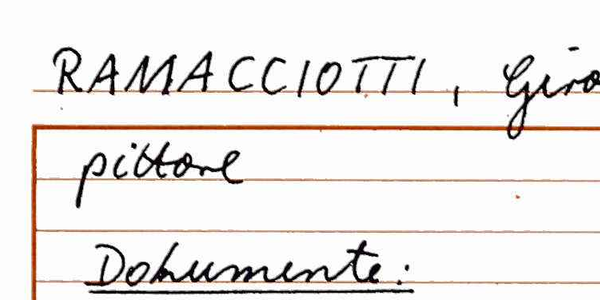 RAMACCIOTTI, Giro
pittore
Dokumente: